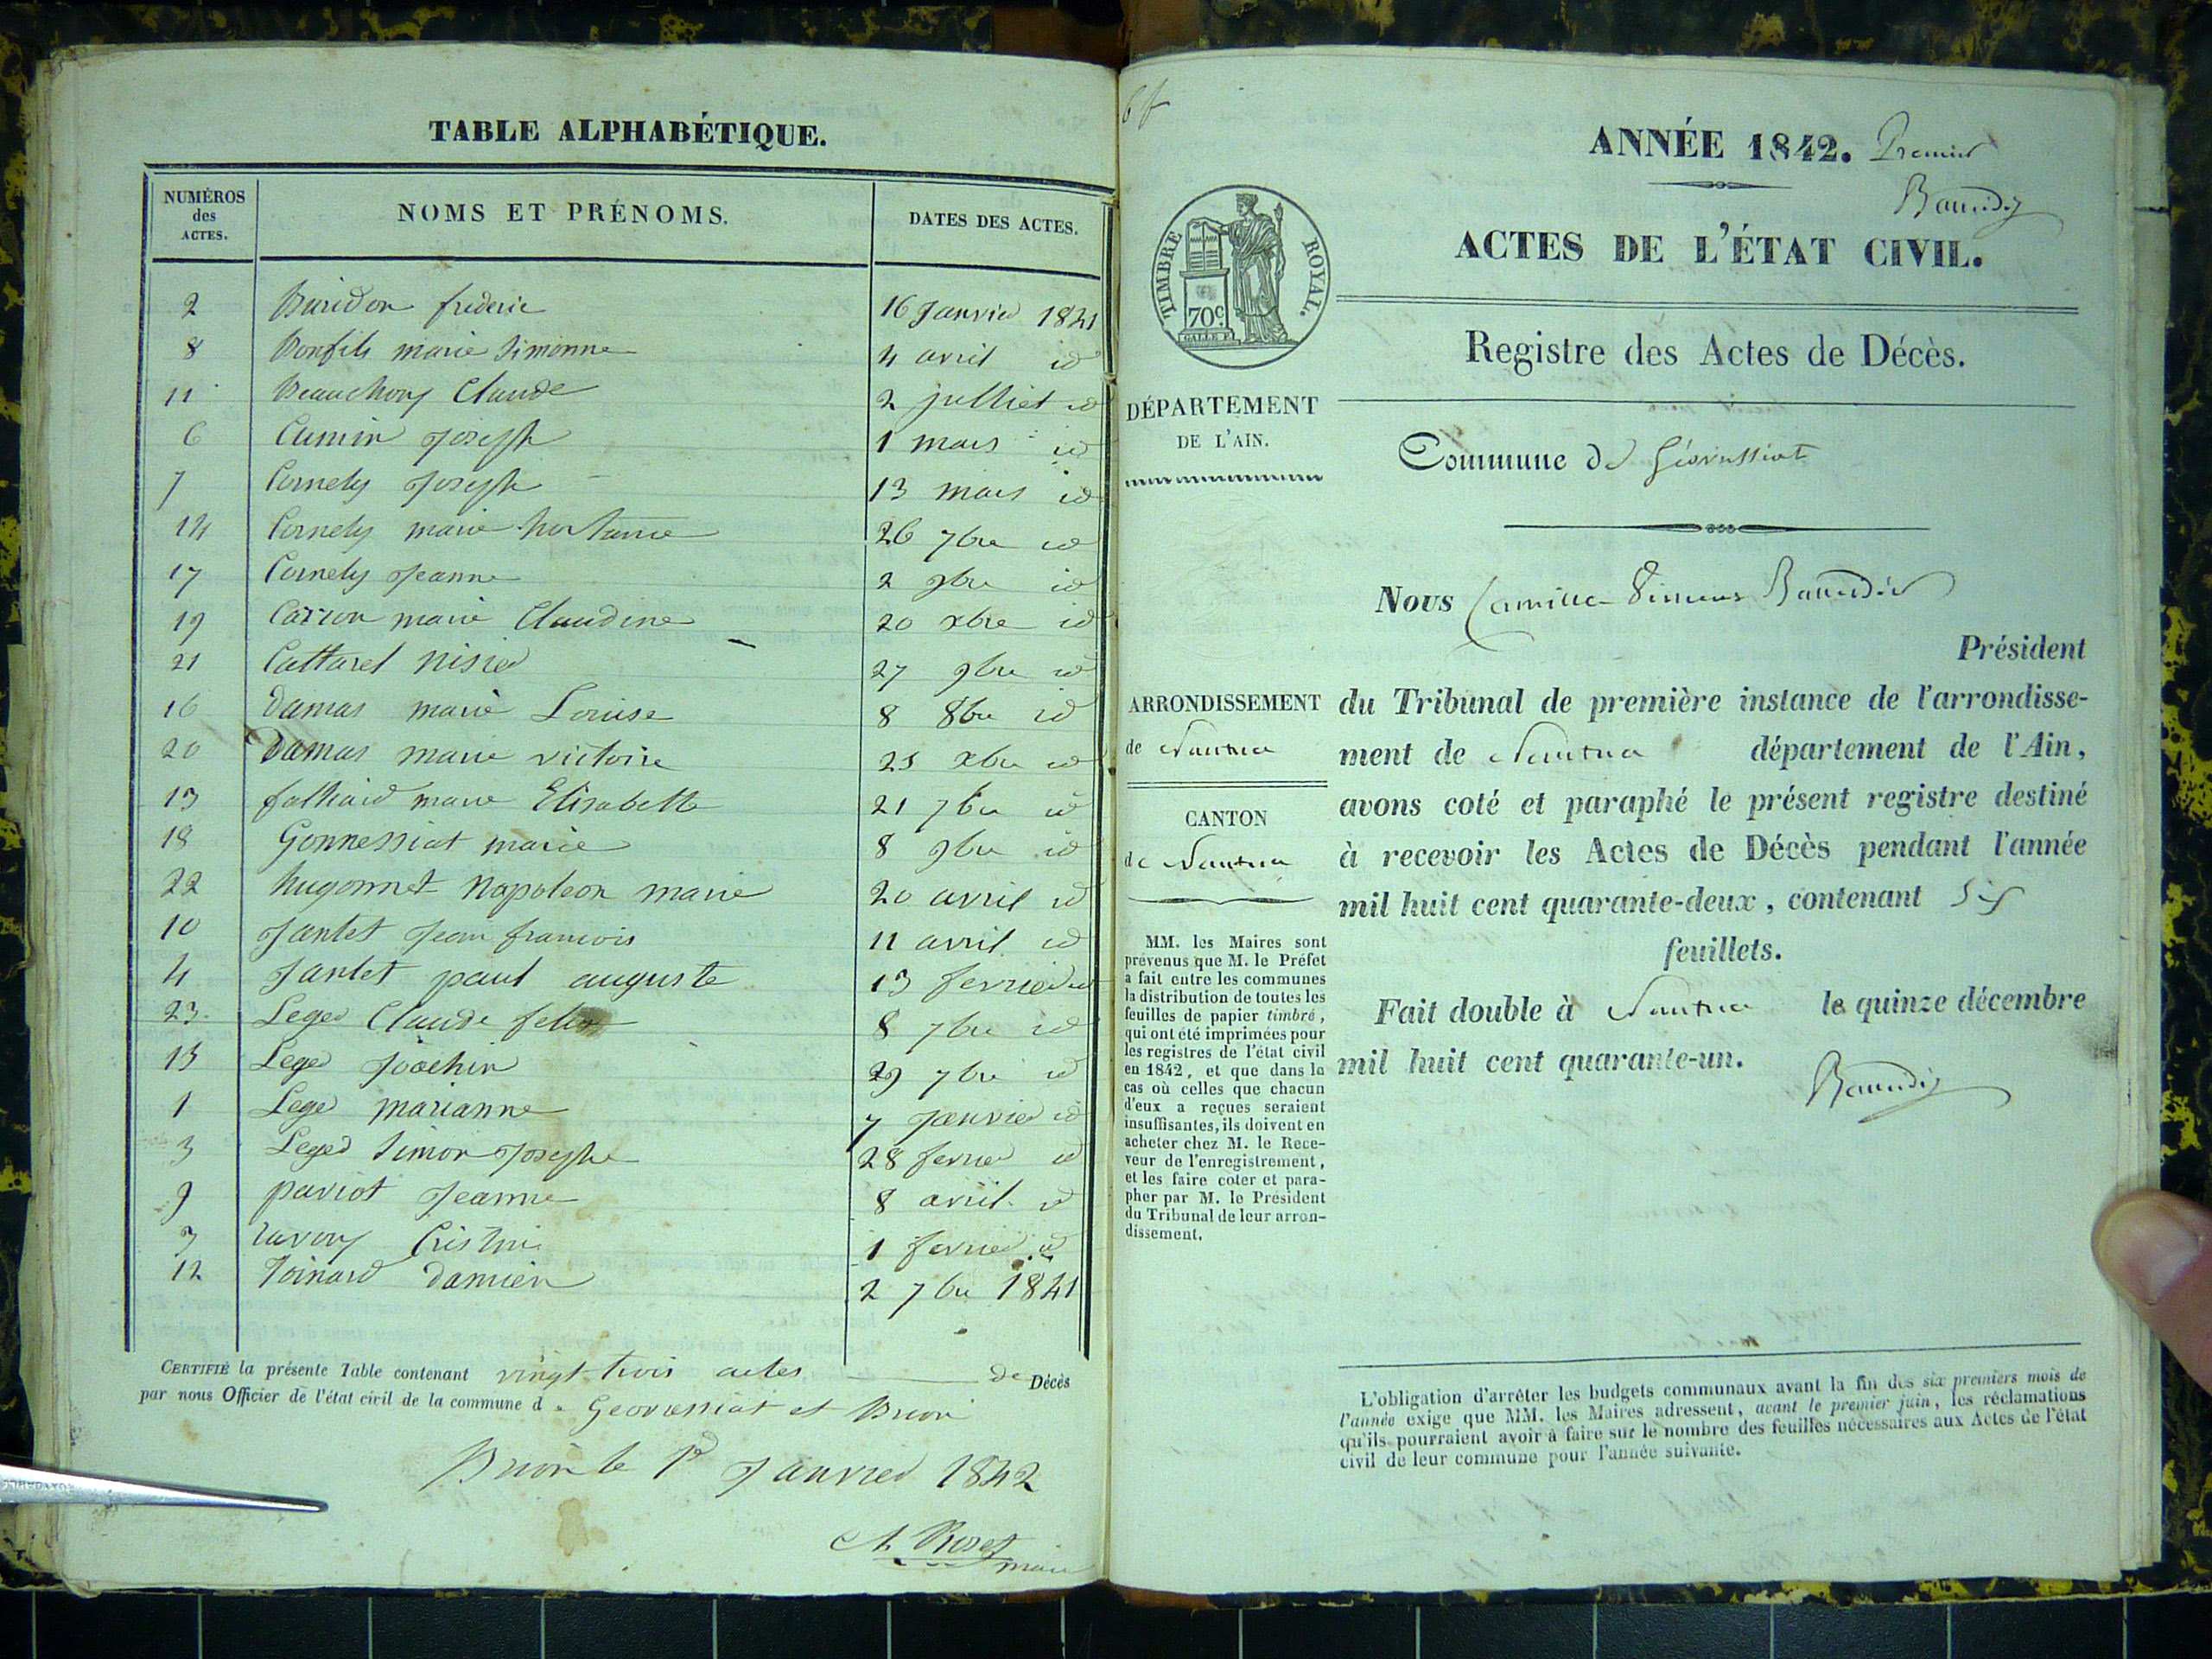 TABLE ALPHABÉTIQUE.
NUMÉROS des ACTES. NOMS ET PRÉNOMS. DATES DES ACTES.
2 Buridon frederic 16 Janvier 1841
8 Bonfils marie Simonne 4 avril id
11 Beauchory Claude 2 julliet id
6 Cumin Joseph 1 mars id
7 Cornely Joseph 13 mars id
14 Cornely marie hortance 26 7bre id
17 Cornely Jeanne 2 9bre id
19 Carron marie Claudine 20 xbre id
21 Cattarel Nisier 27 9bre id
16 Damas marie Louise 8 8bre id
20 Damas marie victoire 25 xbre id
13 falliard marie Elisabette 21 7bre id
18 Gonnessiat marie 8 9bre id
22 hugonnet Napoleon marie 20 avril id
10 Jantet Jean francois 11 avril id
4 Jantet paul auguste 13 fevrier id
23. Leger Claude felix 8 7bre id
15 Leger Joachin 29 7bre id
1 Leger marianne 7 Janvier id
3 Leger Simon Joseph 28 fevrier id
9 pariot Jeanne 8 avril id
3 ravory Cristin 1 fevrier id
12 Toinard Damien 2 7bre 1841
CERTIFIÉ la présente Table contenant vingt trois actes de Décès
par nous Officier de l'état civil de la commune d e Geovressiat et Brion
Brion le 1er Janvier 1842
Roset
maire
ANNÉE 1842. Premier
Baudin
ACTES DE L'ÉTAT CIVIL.
Registre des Actes de Décès.
TIMBRE ROYAL.
70c.
DÉPARTEMENT
DE L'AIN.
Commune de Géovressiat
Nous Camille
Président
ARRONDISSEMENT
de Nantua
CANTON
de Nantua
du Tribunal de première instance de l'arrondisse-
ment de Nantua département de l'Ain,
avons coté et paraphé le présent registre destiné
à recevoir les Actes de Décès pendant l'année
mil huit cent quarante-deux, contenant Six
feuillets.
Fait double à Nantua le quinze décembre
mil huit cent quarante-un.
MM. les Maires sont
prévenus que M. le Préfet
a fait entre les communes
la distribution de toutes les
feuilles de papier timbré,
qui ont été imprimées pour
les registres de l'état civil
en 1842, et que dans le
cas où celles que chacun
d'eux a reçues seraient
insuffisantes, ils doivent en
acheter chez M. le Rece-
veur de l'enregistrement,
et les faire coter et para-
pher par M. le Président
du Tribunal de leur arron-
dissement.
L'obligation d'arrêter les budgets communaux avant la fin des six premiers mois de
l'année exige que MM. les Maires adressent, avant le premier juin, les réclamations
qu'ils pourraient avoir à faire sur le nombre des feuilles nécessaires aux Actes de l'état
civil de leur commune pour l'année suivante.